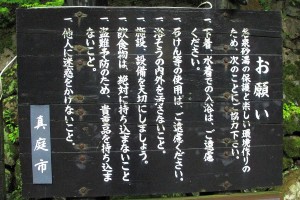 お願い
当泉砂湯の保護と楽しい環境作りの
ため、次のことにご協力下さい。
一、下着、水着での入浴は、ご遠慮
ください。
一、石けん等の使用は、ご遠慮ください。
一、浴そうの内外を汚さないこと。
一、施設、設備を大切にしましょう。
一、飲食物は、絶対に持ち込まないこと
一、盗難予防のため、貴重品を持ち込ま
ないこと。
一、他人に迷惑をかけないこと。
真庭市